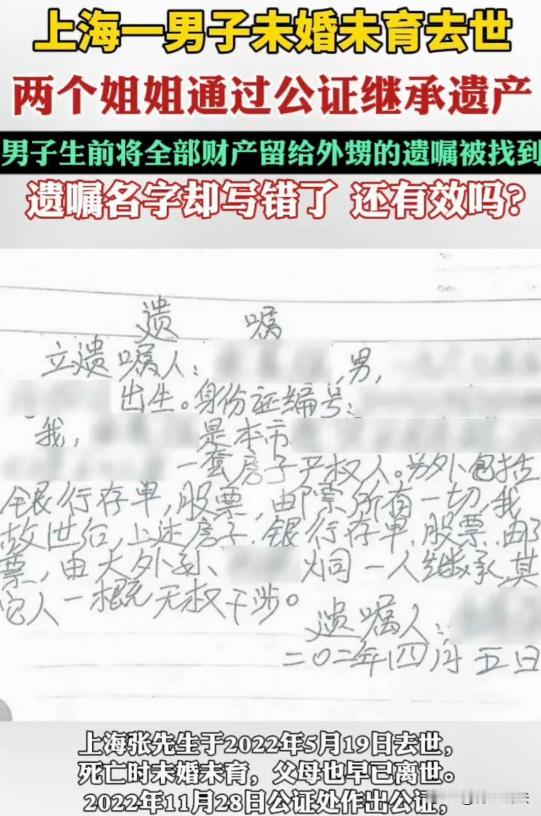 上海一男子未婚未育去世
两个姐姐通过公证继承遗产
男子生前将全部财产留给外甥的遗嘱被找到
遗嘱名字却写错了 还有效吗?
遗 嘱
立遗嘱人: 男,
出生。身份证编号:
我, 是本市
一套房子产权人。另外包括
银行存单,股票,邮票所有一切,我
故世后,上述房子,银行存单,股票,邮
票,由大外孙 炯一人继承其
它人一概无权干涉。
遗嘱人:
二〇二年四月五日
上海张先生于2022年5月19日去世,
死亡时未婚未育,父母也早已离世。
2022年11月28日公证处作出公证,